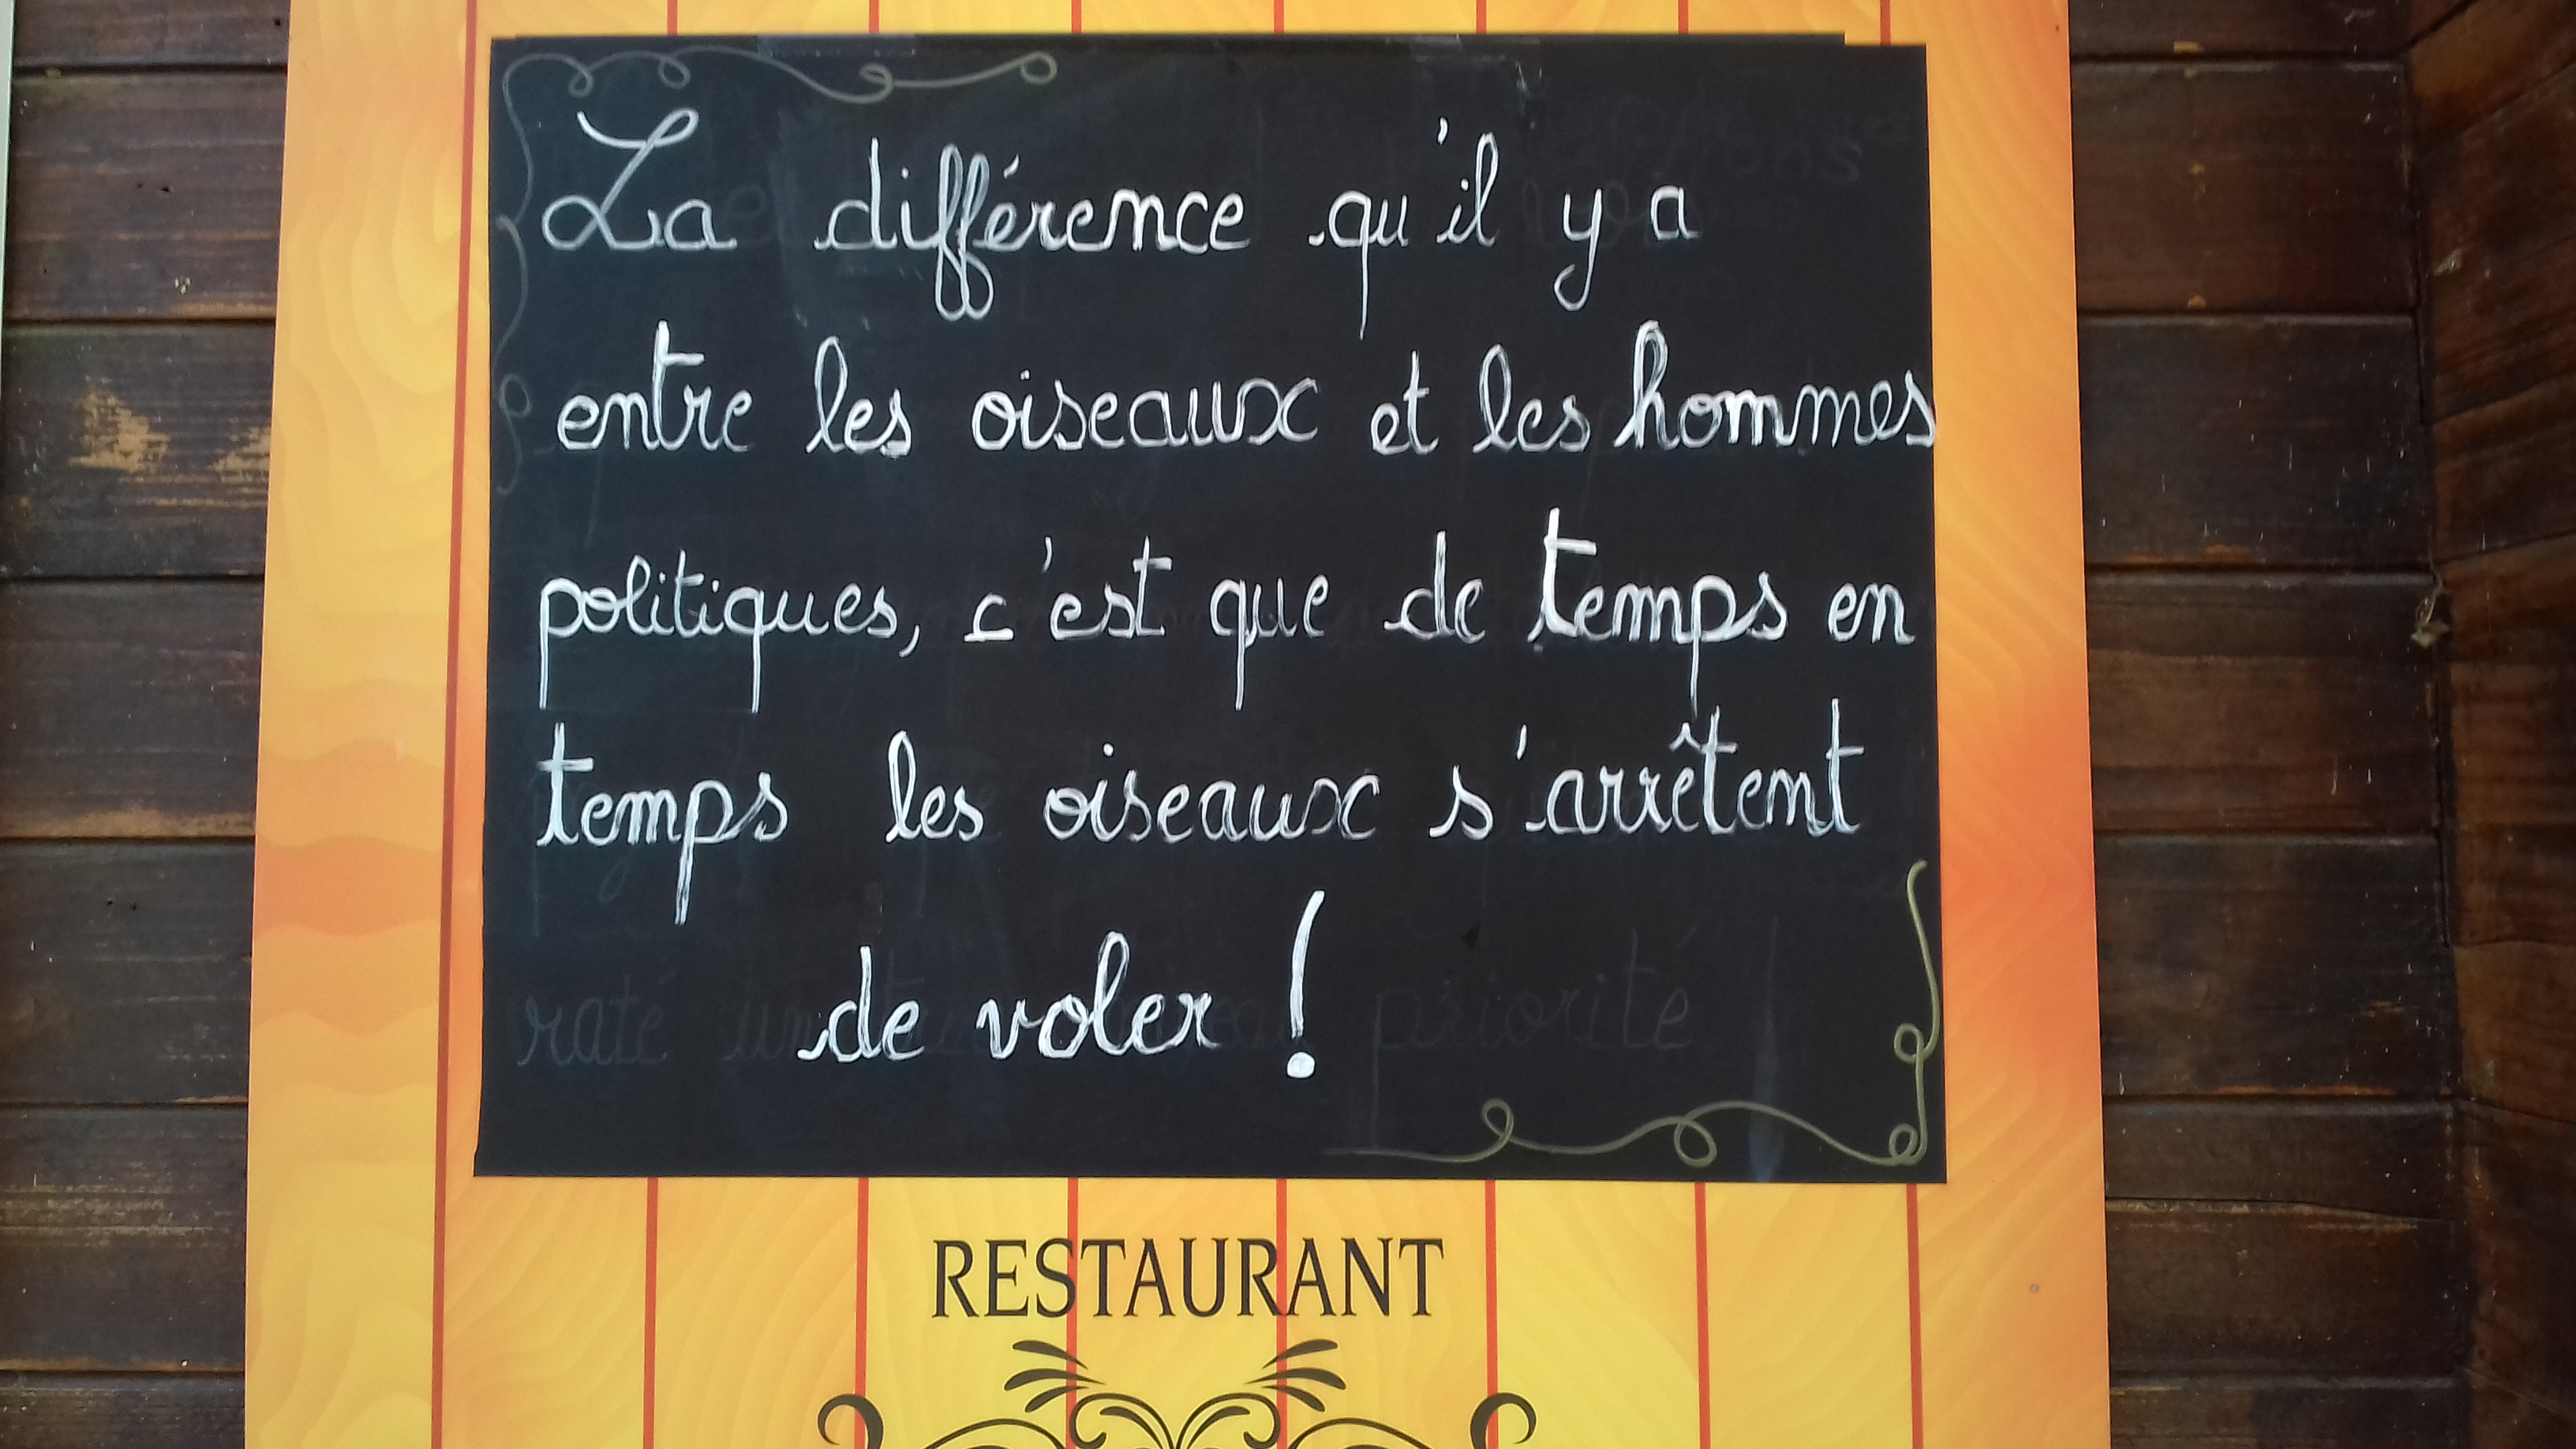 La différence qu'il y a
entre les oiseaux et les hommes
politiques, c'est que de temps en
temps les oiseaux s'arrêtent
de voler !
raté priorité
RESTAURANT